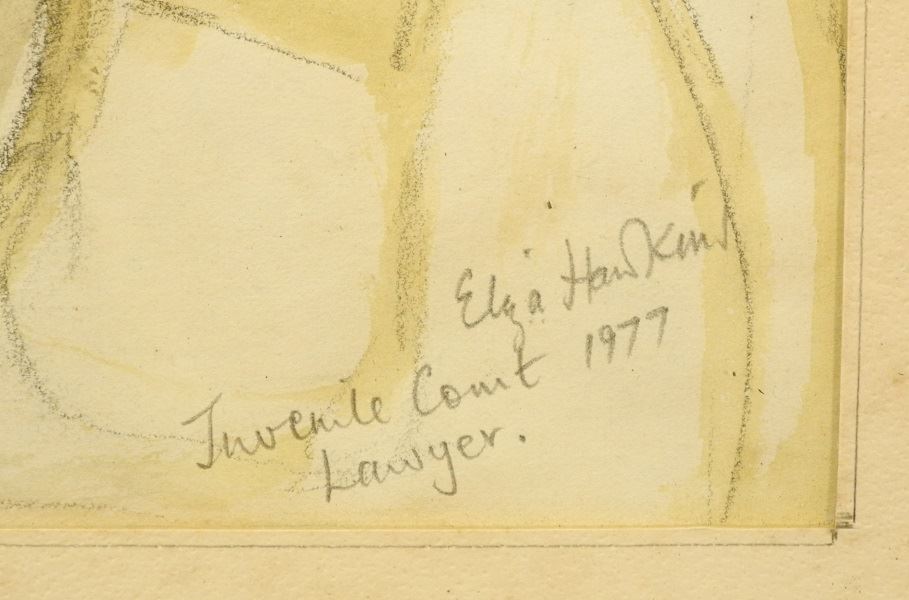 Eliza Hawkins
1977
Juvenile Court
Lawyer.